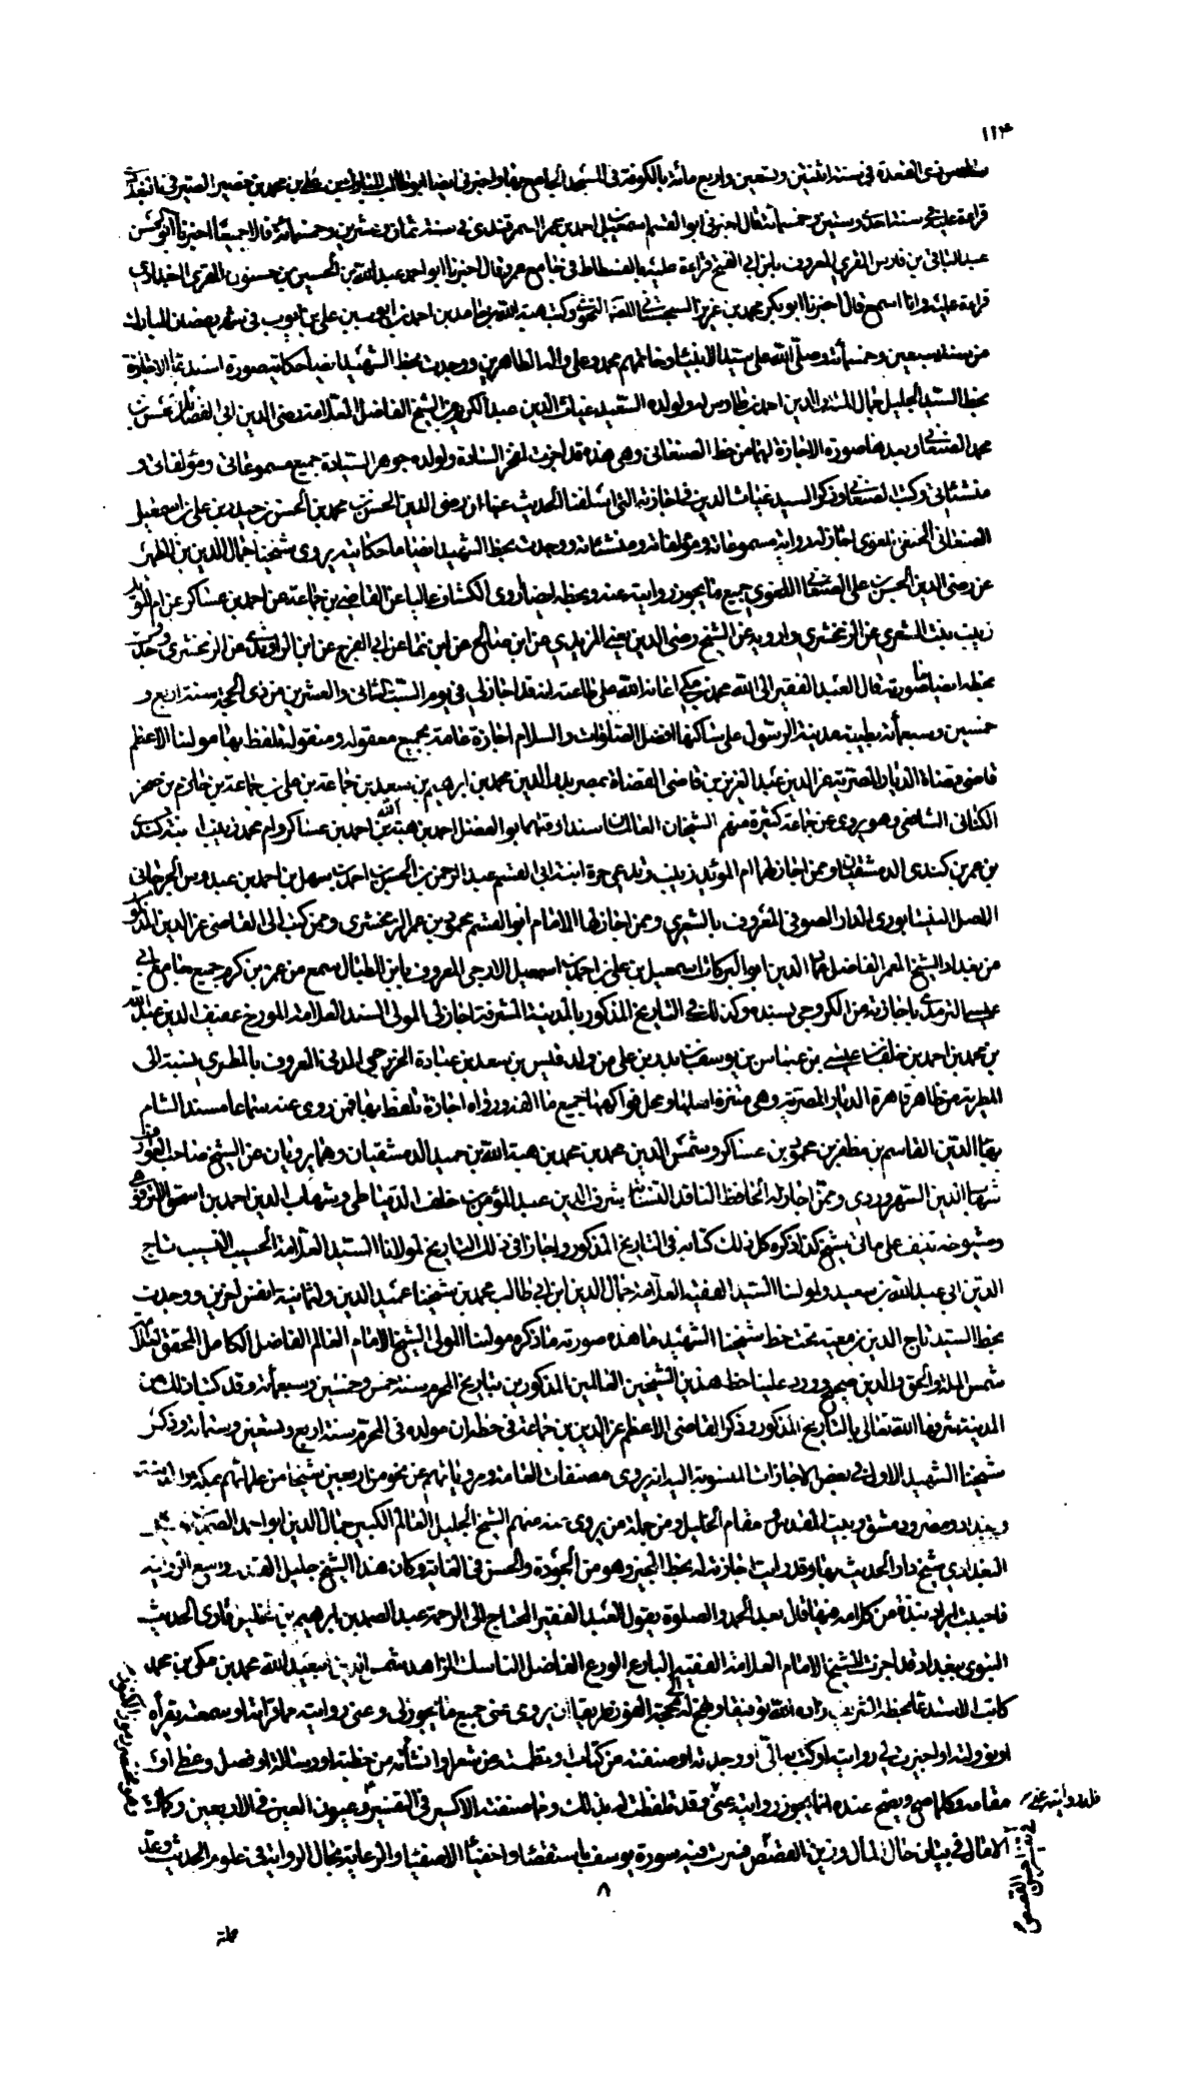 ١١٤
ذي القعدة في سنة اثنتين وتسعين واربع مائة بالكوفة في المسجد الجامع بها واخبرني ايضا ابو طالب المبارك بن علي بن محمد بن خضير الصيرفي
قراءة عليه في سنة احدى وستين وخمسمائة قال اخبرني ابو القسم اسمعيل بن احمد بن عمر السمرقندي في سنة ثمان وعشرين وخمسمائة قالا جميعا اخبرنا ابو الحسن
عبد الباقي بن فارس المقري المعروف بابن ابي الفتح قراءة عليه بالفسطاط في جامع عمرو قال اخبرنا ابو احمد عبد الله بن الحسين بن حسنون المقري البغدادي
قراءة عليه وانا اسمع قال اخبرنا ابو بكر محمد بن عزيز السجستاني اللغوي وكتب هبة الله بن حامد بن احمد بن ايوب بن علي بن ايوب في شهر رمضان المبارك
من سنة سبعين وخمسمائة وصلى الله على سيد الانبياء وخاتمهم محمد وعلى اله الطاهرين ووجدت بخط الشهيد ايضا حكاية صورة الاجازة
بخط السيد الجليل جمال الملة والدين احمد بن طاوس له ولولده السعيد غياث الدين عبد الكريم من الشيخ الفاضل العلامة رضي الدين ابي الفضائل الحسن بن
محمد الصنعاني وبعدها صورة الاجازة لهما من خط الصنعاني وهي هذه قد اجزت لفخر السادة ولولده جوهر السيادة جميع مسموعاتي ومؤلفاتي و
منشئاتي وكتب الصنعاني وذكر السيد غياث الدين في اجازته التي اسلفنا الحديث عنها ان رضي الدين الحسن بن محمد بن الحسن بن حيدر بن علي بن اسمعيل
الصنعاني الحنفي اللغوي اجاز له رواية مسموعاته ومؤلفاته ومنشئاته ووجدت بخط الشهيد ايضا ما حكايته يروي شيخنا جمال الدين بن المطهر
عن رضي الدين الحسن بن علي الصنعاني اللغوي جميع ما يجوز روايته عنه وبخطه ايضا اروي الكشاف عاليا عن القاضي بن جماعة عن احمد بن عساكر عن ام المؤيد
زينب بنت الشعري عن الزمخشري وارويه عن الشيخ رضي الدين يعني المزيدي عن ابن صالح عن ابن نما عن ابي الفرج عن ابن الراوندي عن الزمخشري ووجدت
بخطه ايضا ما صورته قال العبد الفقير الى الله محمد بن مكي اعانه الله على طاعته انه قد اجاز لي في يوم السبت الثاني والعشرين من ذي الحجة سنة اربع و
خمسين وسبعمائة بطيبة مدينة الرسول على ساكنها افضل الصلوات والسلام اجازة عامة بجميع معقوله ومنقوله تلفظ بها مولانا الاعظم
قاضي قضاة الديار المصرية عز الدين عبد العزيز بن قاضي القضاة بمصر بدر الدين محمد بن ابراهيم بن سعد بن جماعة بن علي بن جماعة بن حازم بن صخر
الكناني الشافعي وهو يروي عن جماعة كثيرة منهم الشيخان العالمان سندا وهما ابو الفضل احمد بن هبة الله بن احمد بن عساكر وام محمد زينب ابنة كندي
بن عمر بن كندي الدمشقيان وممن اجاز لهما ام المؤيد زينب وتدعى حرة ابنة ابي القسم عبد الرحمن بن الحسن بن احمد بن سهل بن احمد بن عبدوس الجرجاني
الاصل النيسابوري الدار الصوفي المعروف بالشعري وممن اجاز لها الامام ابو القسم محمود بن عمر الزمخشري وممن كتب الى القاضي عز الدين المذكور
من بغداد الشيخ المعمر الفاضل عماد الدين ابو البركات اسمعيل بن علي بن احمد بن اسمعيل الازجي المعروف بابن الطبال سمع من عمر بن كرم جميع جامع ابي
عيسى الترمذي باجازته من الكروخي بسنده وكذلك في التاريخ المذكور بالمدينة المشرفة اجاز لي المولى السند العلامة المورخ عفيف الدين عبد الله
بن محمد بن احمد بن خلف بن عيسى بن عباس بن يوسف بن بدر بن علي من ولد قيس بن سعد بن عبادة الخزرجي المدني المعروف بالمطري نسبة الى
المطرية من ظاهر قاهرة الديار المصرية وهي متنزه اهلها ومحل فواكهها جميع ما الفه ورواه اجازة تلفظ بها فممن روى عنه سماعا مسند الشام
بهاء الدين القاسم بن مظفر بن محمود بن عساكر وشمس الدين محمد بن محمد بن هبة الله بن حميد الدمشقيان وهما يرويان عن الشيخ صاحب العوارف
شهاب الدين السهروردي وممن اجاز له الحافظ الناقد النسابة شرف الدين عبد المؤمن بن خلف الدمياطي وشهاب الدين احمد بن اسحق الابرقوهي
ومشيوخه تنيف على مائتي شيخ كذا ذكره كل ذلك كتابه في التاريخ المذكور واجازا في ذلك التاريخ لمولانا السيد العلامة الحسيب النسيب تاج
الدين ابي عبد الله بن معية ولمولانا السيد الفقيه العلامة جمال الدين ابن ابي طالب محمد بن شيخنا عميد الدين ولثمانية انفس اخرين ووجدت
بخط السيد تاج الدين بن معية تحت خط شيخنا الشهيد ما هذه صورته ما ذكره مولانا المولى الشيخ الامام العالم الفاضل الكامل المحقق
شمس الملة والحق والدين صحيح وورد علينا خط هذين الشيخين العالمين المذكورين بتاريخ المحرم سنة خمس وخمسين وسبعمائة وقد كتبا ذلك من
المدينة شرفها الله تعالى بالتاريخ المذكور وذكر القاضي الاعظم عز الدين بن جماعة في خطه ان مولده في المحرم سنة اربع وتسعين وستمائة وذكر
شيخنا الشهيد الاول في بعض الاجازات المنسوبة اليه انه يروي مصنفات العامة ومروياتهم عن نحو من اربعين شيخا من علمائهم بمكة والمدينة
وبغداد ومصر ودمشق وبيت المقدس ومقام الخليل ومن جملة من يروي عنه منهم الشيخ الجليل العالم الكبير جمال الدين ابو احمد عبد الصمد
البغدادي شيخ دار الحديث بها وقد رايت اجازته له بخط المجيز وهو من الجودة والحسن في الغاية وكان هذا الشيخ جليل القدر وسيع الرواية
فاحببت ايراد نبذة من كلامه منها قال بعد الحمد والصلوة يقول العبد الفقير المحتاج الى الرحمة عبد الصمد بن ابراهيم بن الخليل قاري الحديث
النبوي ببغداد قد اجزت للشيخ الامام العلامة الفقيه البارع الورع الفاضل الناسك الزاهد شمس الدين ابي عبد الله محمد بن مكي بن محمد
كاتب الاستدعاء بخطه الشريف زاده الله توفيقا ونهج له الى محجة الفوز طريقا ان يروي عني جميع ما يجوز لي وعني روايته مما قرأته او سمعته بقرائة
او نوولته او اجيز لي روايته او كتب به الي او وجدته او صنفته من كتاب او نظمته من شعر او انشأته من خطبة او رسالة او فصل وعظ او
مقامة وكلما صح ويصح عنده انه مما يجوز روايته عني وقد تلفظت له بذلك ومما صنفته الاكسير في التفسير وعيون العين في الاربعين وكتاب
الامال في بيان حال المال وزين القصص فسرت فيه سورة يوسف باستقصاء واحفياء الاصفياء والرعاية بحال الرواية في علوم الحديث
فله روايته عني
٨